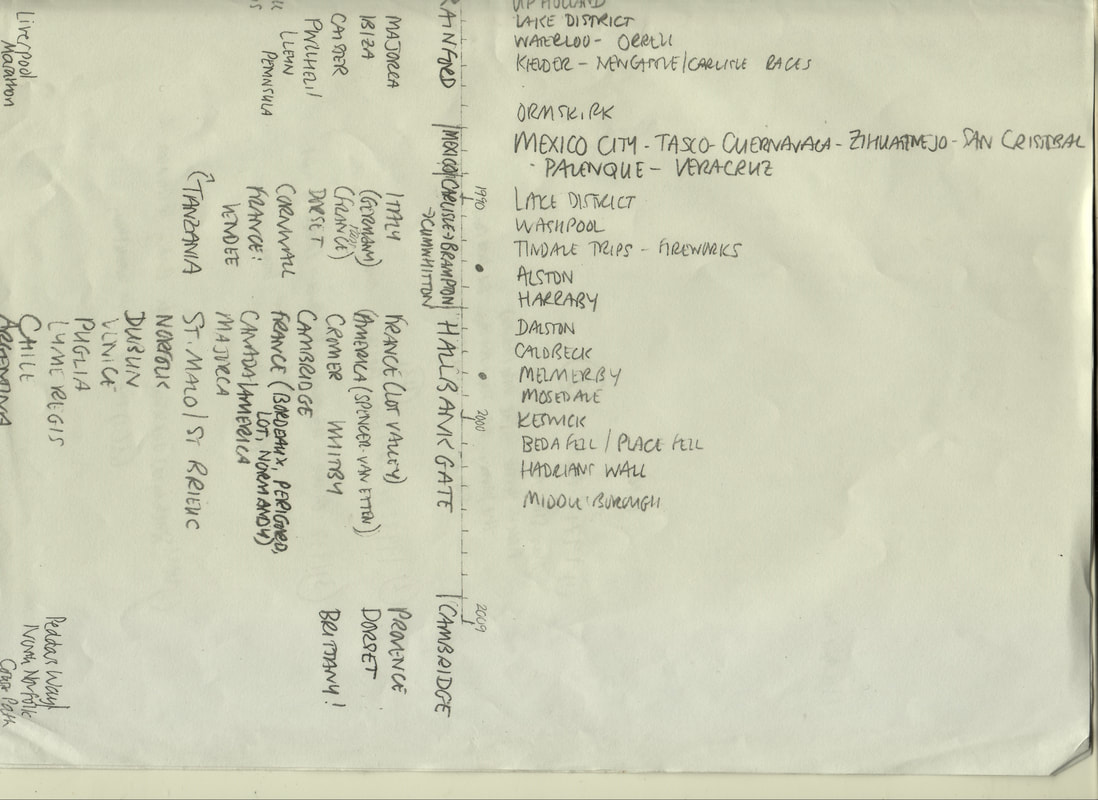 LAKE DISTRICT
WATERLOO - ORRELL
KIELDER - NEWCASTLE/CARLISLE RACES
ORMSKIRK
MEXICO CITY - TASCO - CUERNAVACA - ZIHUATNEJO - SAN CRISTOBAL
- PALENQUE - VERACRUZ
LAKE DISTRICT
WASHPOOL
TINDALE TRIPS - FIREWORKS
ALSTON
HARRABY
DALSTON
CALDBECK
MELMERBY
MOSEDALE
KESWICK
BEDA FELL / PLACE FELL
HADRIANS WALL
MIDDLESBOROUGH
1990
2000
2009
RAINFORD
MEXICO
CARLISLE → BRAMPTON
→ CUMWHITTON
HALLBANKGATE
CAMBRIDGE
MAJORCA
IBIZA
CAISTER
PWLLHELI/
LLEYN
PENINSULA
Liverpool
Marathon
ITALY
(GERMANY)
(FRANCE)
DORSET
CORNWALL
FRANCE:
VENDEE
(TANZANIA
FRANCE (LOT VALLEY)
(AMERICA (SPENCER-VAN ETTEN)
CROMER WHITBY
CAMBRIDGE
FRANCE (BORDEAUX, PERIGORD,
LOT, NORMANDY)
CANADA/AMERICA
MAJORCA
ST. MALO / ST BRIEUC
NORFOLK
DUBLIN
VENICE
PUGLIA
LYME REGIS
CHILE
ARGENTINA
PROVENCE
DORSET
BRITTANY!
Peddars Way/
North Norfolk
Coast Path